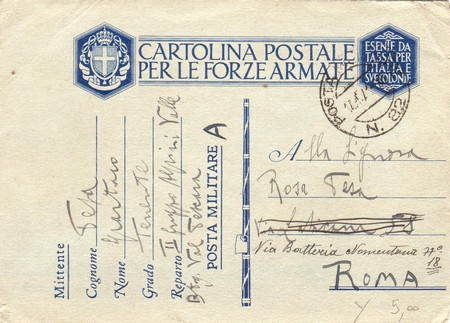 CARTOLINA POSTALE
PER LE FORZE ARMATE
ESENTE DA
TASSA PER
L'ITALIA E
SVE COLONIE
POSTA
N. 82
Mittente
Cognome Tesa
Nome
Grado Tenente
Reparto Iº Gruppo Alpini Valle
Btg. Val Fescura
POSTA MILITARE A
Alla Signora
Rosa Tesa
Via Batteria Nomentana nº
18
ROMA
5,00